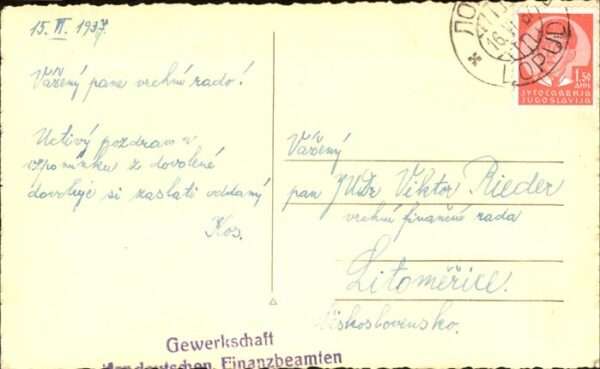 15. VI. 1937.
Vážený pane vrchní rado!
Uctivý pozdrav a
vzpomínku z dovolené
dovoluje si zaslati oddaný
Kos.
ЛОПУД
16. VI.
LOPUD
1.50
ДИН.
ЈУГОСЛАВИЈА
JUGOSLAVIJA
Vážený
pan JUDr Viktor Rieder
vrchní finanční rada
Litoměřice.
Československo.
Gewerkschaft
Finanzbeamten